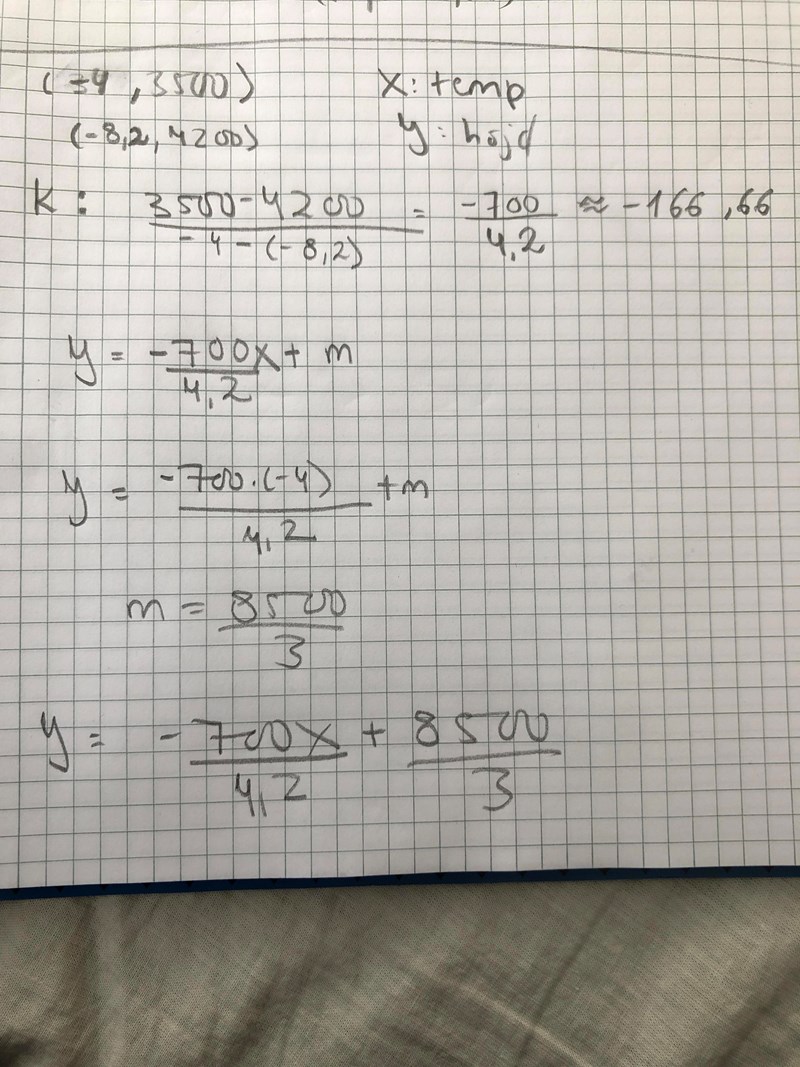 (-4, 3500) x: temp
(-8,2, 4200) y: höjd
k: \frac{3500-4200}{-4-(-8,2)} = \frac{-700}{4,2} ≈ -166,66
y = \frac{-700x}{4,2} + m
y = \frac{-700·(-4)}{4,2} + m
m = \frac{8500}{3}
y = -\frac{700x}{4,2} + \frac{8500}{3}